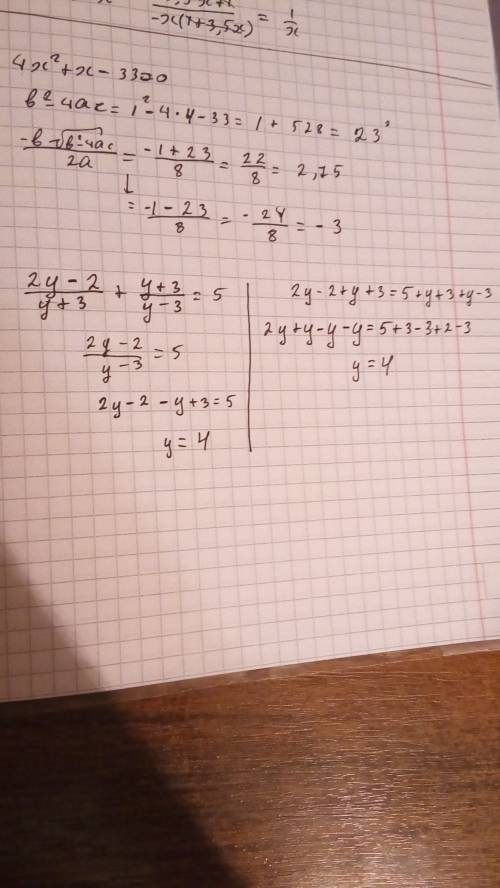 -x(1+3,5x) = 1/x
4x²+x-33=0
b²-4ac = 1²-4·4-33 = 1+528 = 23²
-b-√b²-4ac/2a = -1+23/8 = 22/8 = 2,75
↓ = -1-23/8 = -24/8 = -3
2y-2/y+3 + y+3/y-3 = 5
2y-2/y-3 = 5
2y-2-y+3=5
y=4
2y-2+y+3=5+y+3+y-3
2y+y-y-y=5+3-3+2-3
y=4